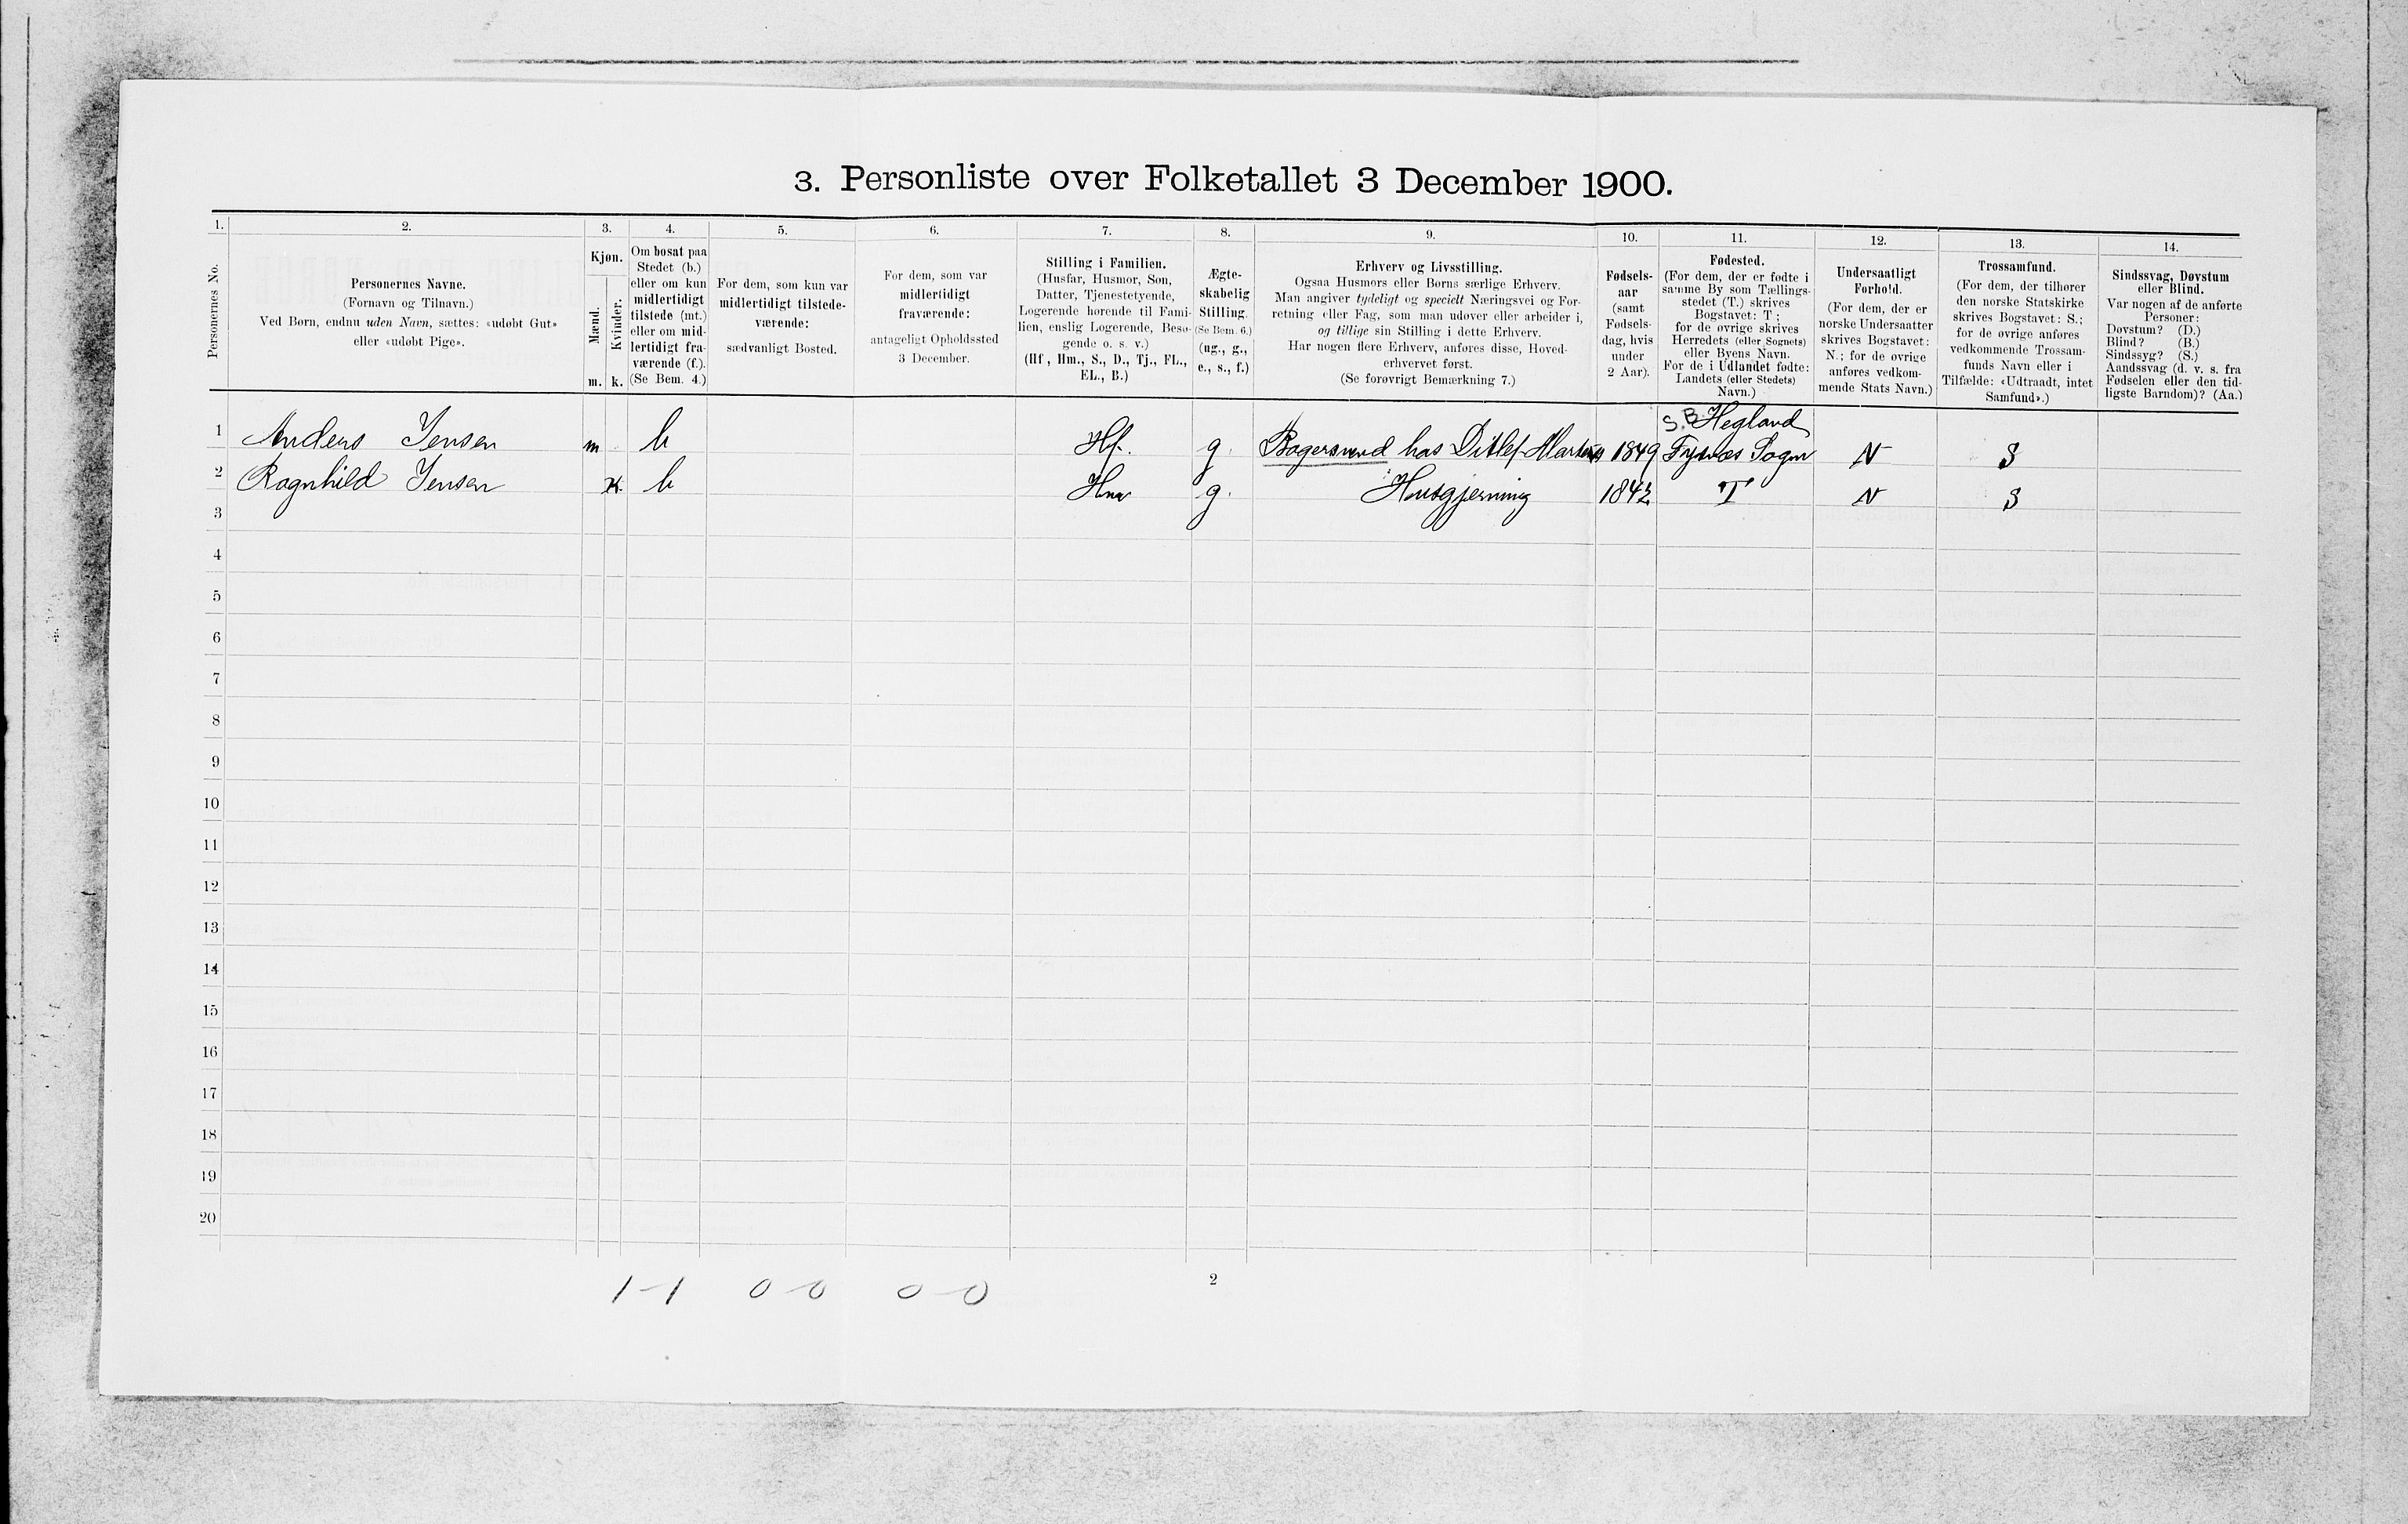 3. Personliste over Folketallet 3 December 1900.
1. 2. 3. 4. 5. 6. 7. 8. 9. 10. 11. 12. 13. 14.
Personernes No.
Personernes Navne.
(Fornavn og Tilnavn.)
Ved Børn, endnu uden Navn, sættes: «udøbt Gut»
eller «udøbt Pige».
Kjøn.
Mænd.
Kvinder.
m. k.
Om bosat paa
Stedet (b.)
eller om kun
midlertidigt
tilstede (mt.)
eller om mid-
lertidigt fra-
værende (f.).
(Se Bem. 4.)
For dem, som kun var
midlertidigt tilstede-
værende:
sædvanligt Bosted.
For dem, som var
midlertidigt
fraværende:
antageligt Opholdssted
3 December.
Stilling i Familien.
(Husfar, Husmor, Søn,
Datter, Tjenestetyende,
Logerende hørende til Fami-
lien, enslig Logerende, Besø-
gende o. s. v.)
(Hf., Hm., S., D., Tj., FL.,
EL., B.)
Ægte-
skabelig
Stilling.
(Se Bem. 6.)
(ug., g.,
e., s., f.)
Erhverv og Livsstilling.
Ogsaa Husmors eller Børns særlige Erhverv.
Man angiver tydeligt og specielt Næringsvei og For-
retning eller Fag, som man udøver eller arbeider i,
og tillige sin Stilling i dette Erhverv.
Har nogen flere Erhverv, anføres disse, Hoved-
erhvervet først.
(Se forøvrigt Bemærkning 7.)
Fødsels-
aar
(samt
Fødsels-
dag, hvis
under
2 Aar).
Fødested.
(For dem, der er fødte i
samme By som Tællings-
stedet (T.) skrives
Bogstavet: T;
for de øvrige skrives
Herredets (eller Sognets)
eller Byens Navn.
For de i Udlandet fødte:
Landets (eller Stedets)
Navn.)
Undersaatligt
Forhold.
(For dem, der er
norske Undersaatter
skrives Bogstavet:
N.; for de øvrige
anføres vedkom-
mende Stats Navn.)
Trossamfund.
(For dem, der tilhører
den norske Statskirke
skrives Bogstavet: S.;
for de øvrige anføres
vedkommende Trossam-
funds Navn eller i
Tilfælde: «Udtraadt, intet
Samfund».)
Sindssvag, Døvstum
eller Blind.
Var nogen af de anførte
Personer:
Døvstum? (D.)
Blind? (B.)
Sindssyg? (S.)
Aandssvag (d. v. s. fra
Fødselen eller den tid-
ligste Barndom)? (Aa.)
S. B. Hegland
1 Anders Jensen m b Hf. g. Bagersvend hos Ditlef Martens 1849 Fysnæs Sogn N S
2 Ragnhild Jensen K b Hm g. Husgjerning 1842 T N S
3
4
5
6
7
8
9
10
11
12
13
14
15
16
17
18
19
20
1-1 0-0 0-0
2